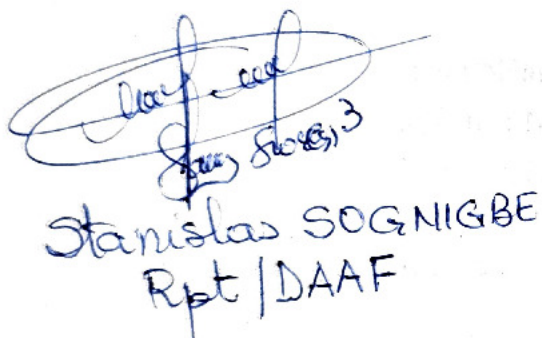 Stanislas SOGNIGBE
Rpt/DAAF